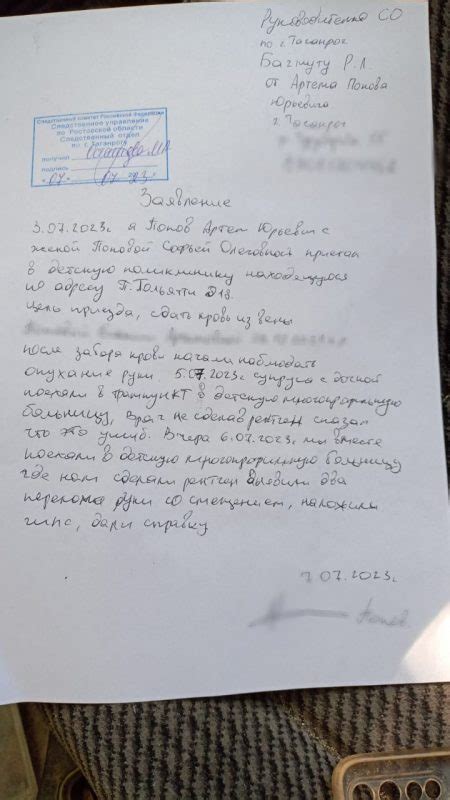 Руководителю СО
по г. Таганрог
Багмуту Р.Л.
от Артема Попова
Юрьевича
г. Таганрог
Следственный комитет Российской Федерации
Следственное управление
по Ростовской области
Следственный отдел
по г. Таганрог
получил
подпись
"07" 07 23 г.
Заявление
3.07.2023г я Попов Артем Юрьевич с
женой Поповой Софьей Олеговной приехал
в детскую поликлинику находящуюся
по адресу П. Тольятти
Цель приезда, сдать кровь из вены
после забора крови начали наблюдать
опухание руки. 5.07.2023г супруга с дочкой
поехали в травмпункт в детскую многопрофильную
больницу, врач не сделав рентген сказал
что это ушиб. Вчера 6.07.2023г мы вместе
поехали в детскую многопрофильную больницу
где нам сделали рентген выявили два
перелома руки со смещением, наложили
гипс, дали справку
7.07.2023г
Попов.